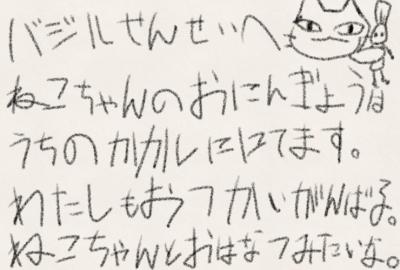 バジルせんせいへ
ねこちゃんのおにんぎょうは
うちのカカルににてます。
わたしもおうつかいがんばる。
ねこちゃんとおはなつみたいな。